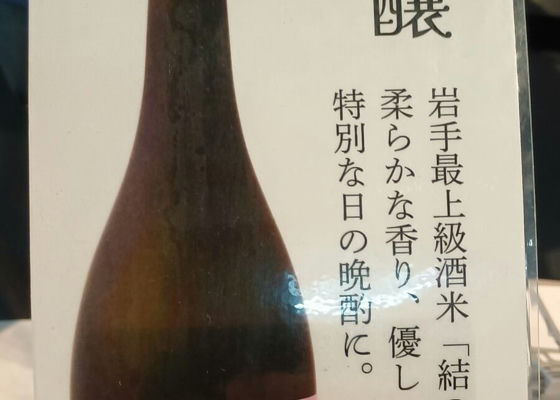 醸
岩手最上級酒米「結
柔らかな香り、優し
特別な日の晩酌に。